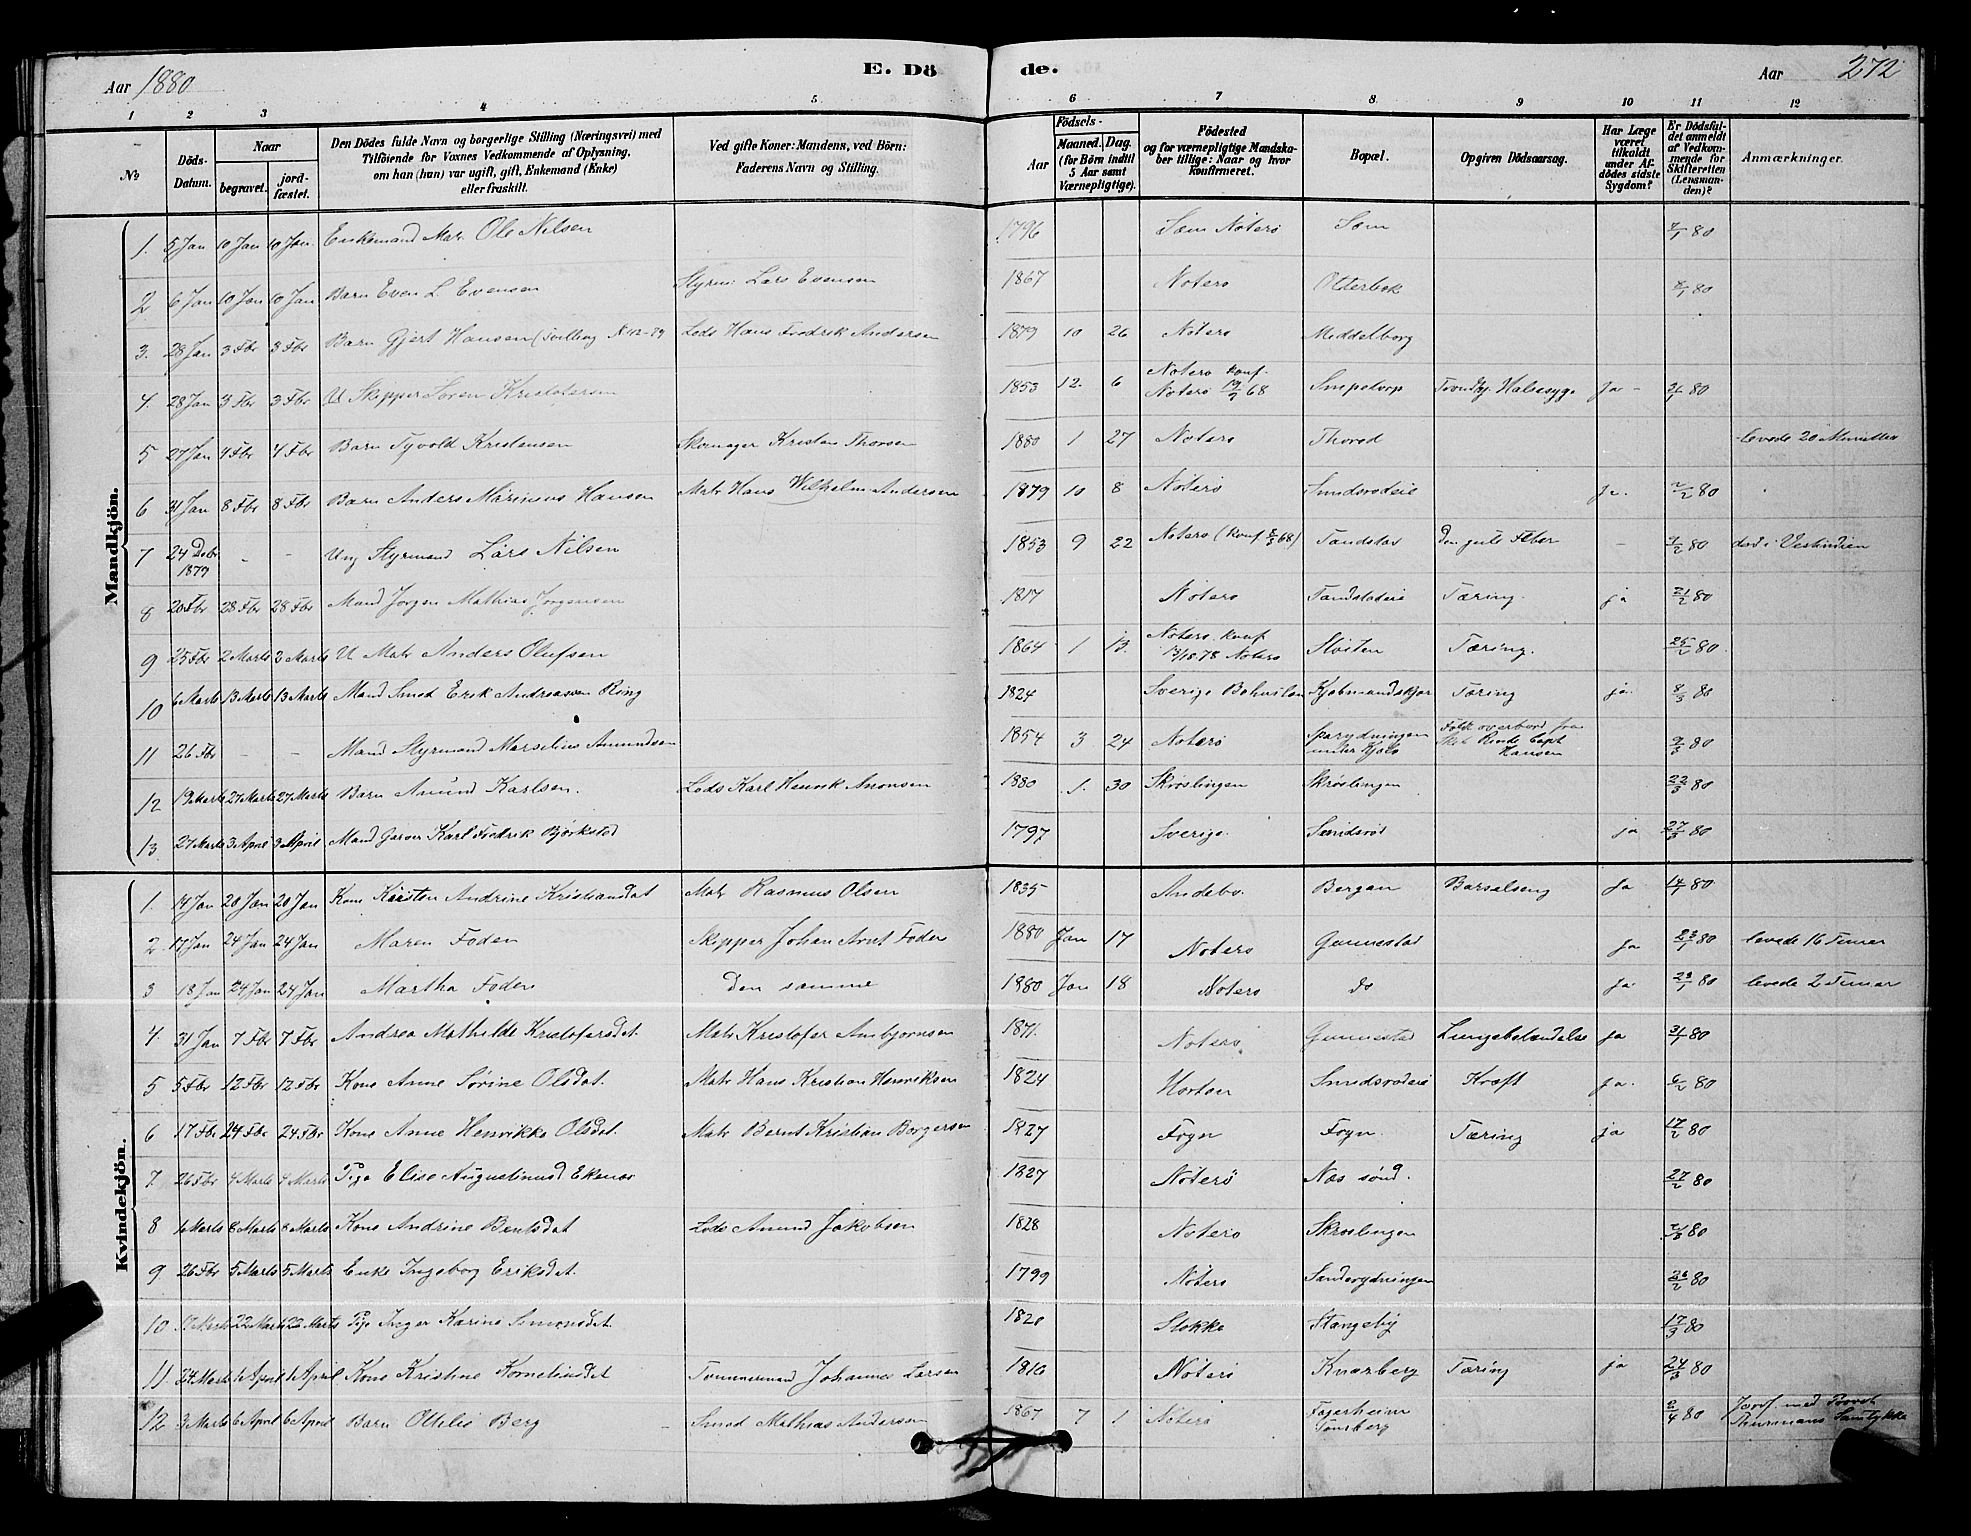 Aar 1880
E. Dö
de.
Aar
272
1 2 3 4 5 6 7 8 9 10 11 12
No
Döds-Datum.
Naar
begravet.
jord-fæstet.
Den Dödes fulde Navn og borgerlige Stilling (Næringsvei) med
Tilföiende for Voxnes Vedkommende af Oplysning,
om han (hun) var ugift, gift, Enkemand (Enke)
eller fraskilt.
Ved gifte Koner: Mandens, ved Börn:
Faderens Navn og Stilling.
Födsels-
Aar
Maaned. Dag.
(for Börn indtil
5 Aar samt
Værnepligtige).
Födested
og for værnepligtige Mandska-
ber tillige: Naar og hvor
konfirmeret.
Bopæl.
Opgiven Dödsaarsag.
Har Læge
været
tilkaldt
under Af-
dödes sidste
Sygdom?
Er Dödsfal-
det anmeldt
af Vedkom-
mende for
Skifteretten
(Lensman-
den)?
Anmærkninger.
Mandkjön.
1. 5 Jan 10 Jan 10 Jan Enkemand Matr. Ole Nilsen 1796 Sem Nøterø Sem 7/1 80
2 6 Jan 10 Jan 10 Jan Barn Even L. Evensen Styrm: Lars Evensen 1867 Noterø Otterbek 8/1 80
3. 28 Jan 3 Fbr 3 Fbr Barn Gjert Hansen (Tvilling N 12-79 Lods Hans Fredrik Andersen 1879 10 26 Noterø Meddelborg
4. 28 Jan 3 Fbr 3 Fbr U Skipper Soren Kristofersen 1853 12. 6 Noterø konf. Noterø 19/7 68 Smpetorp Halsesyge Ja 80
5 27 Jan 4 Fbr 4 Fbr Barn Tyvold Kristensen Skomager Kristen Thorsen 1880 1 27 Noterø Thorød levede 20 Minutter
6 31 Jan 8 Fbr 8 Fbr Barn Anders Marinius Hansen Matr Hans Wilhelm Andersen 1879 10 8 Noterø Smidsrodeie Ja. 2/2 80
7 24 Debr 1879 - - Ung Styrmand Lars Nilsen 1853 9 22 Noterø (Konf 68) den gule Feber - 7/2 80 død i Vestindien
8 20 Fbr 28 Fbr 28 Fbr Mand Jorgen Mathias Jorgensen 1817 Noterø Tæring. ja 21/2 80
9 25 Fbr 2 Marts 2 Marts U Matr Anders Olufsen 1864 1 13. Noterø konf 1878 Noterø Støiten Tæring. 25/2 80.
10 6 Marts 13 Marts 13 Marts Mand Smed Erik Andreasen Ring 1824 Sverige Bohuslen Kjøbmandskjær Tæring ja 8/3 80
11 26 Fbr - - Mand Styrmand Marselius Amundsen 1854 3 24 Noterø under Kjolo Faldt overbord fra Skib Rinde Capt Hansen 9/3 80
12 19 Marts 27 Marts 27 Marts Barn Amund Karlsen. Lods Karl Henrik Amonsen 1880 1. 30 Skrøslingen Skrøslingen 22/3 80
13. 27 Marts 3 April 3 April Mand Garver Karl Fredrik Bjørkstod 1797 Sverige. Smidsrød ja 27/3 80
Kvindekjön.
1. 14 Jan 20 Jan 20 Jan Kone Kirsten Andrine Kristiansdat Matr Rasmus Olsen 1835 Andebo. Bergan Barselseng Ja 14/1 80
2. 17 Jan 24 Jan 24 Jan Maren Foden Skipper Johan Arnt Foden 1880 Jan 17 Noterø Gunnestad Ja 23/1 80 levede 16 Timer
3 18 Jan 24 Jan 24 Jan Martha Foden den samme 1880 Jan 18 Noterø do Ja 23/1 80 levede 2 Timer
4. 31 Jan 7 Fbr 7 Fbr Andrea Mathilde Kristofersdat. Matr Kristofer Ambjornsen 1871. Noterø Gunnestad Lungebetændelse ja 31/1 80
5. 5 Fbr 12 Fbr 12 Fbr Kone Anne Sorine Olsdat. Matr Hans Kristian Henriksen 1824 Horten Smidsrodeie Kræft ja. 6/2 80
6 17 Fbr 24 Fbr 24 Fbr Kone Anne Henrikke Olsdat. Matr Bernt Kristian Borgersen 1827 Føyn Føyn. Tæring ja 17/2 80
7. 26 Fbr 4 Marts 4 Marts Pige Elise Augustinusd Ekenæs 1827 Nøterø Næs sønd. 27/2 80
8 1 Marts 8 Marts 8 Marts Kone Andrine Bentsdat Lods Amund Jakobsen 1828 Noterø Skrøslingen 2/3 80
9 26 Fbr 5 Marts 5 Marts Enke Ingeborg Eriksdat. 1799 Nøterø Sanderydningen 26/2 80
10 22 Marts 22 Marts Pige Inger Karine Simonsdat. 1820 Stokke Stangeby 17/3 80
11 24 Marts 1 April 1 April Kone Kristine Korneliusdat Tømmermand Johannes Larsen 1816 Nøterø Knarberg Tæring ja 24/3 80
12 3 Marts 6 April 6 April Barn Othilie Berg Smed Mathias Andersen 1867 7 1 Nøterø Fagerheim Tønsberg 2/4 80 Jordf. med Provst Thurmans Samtykke